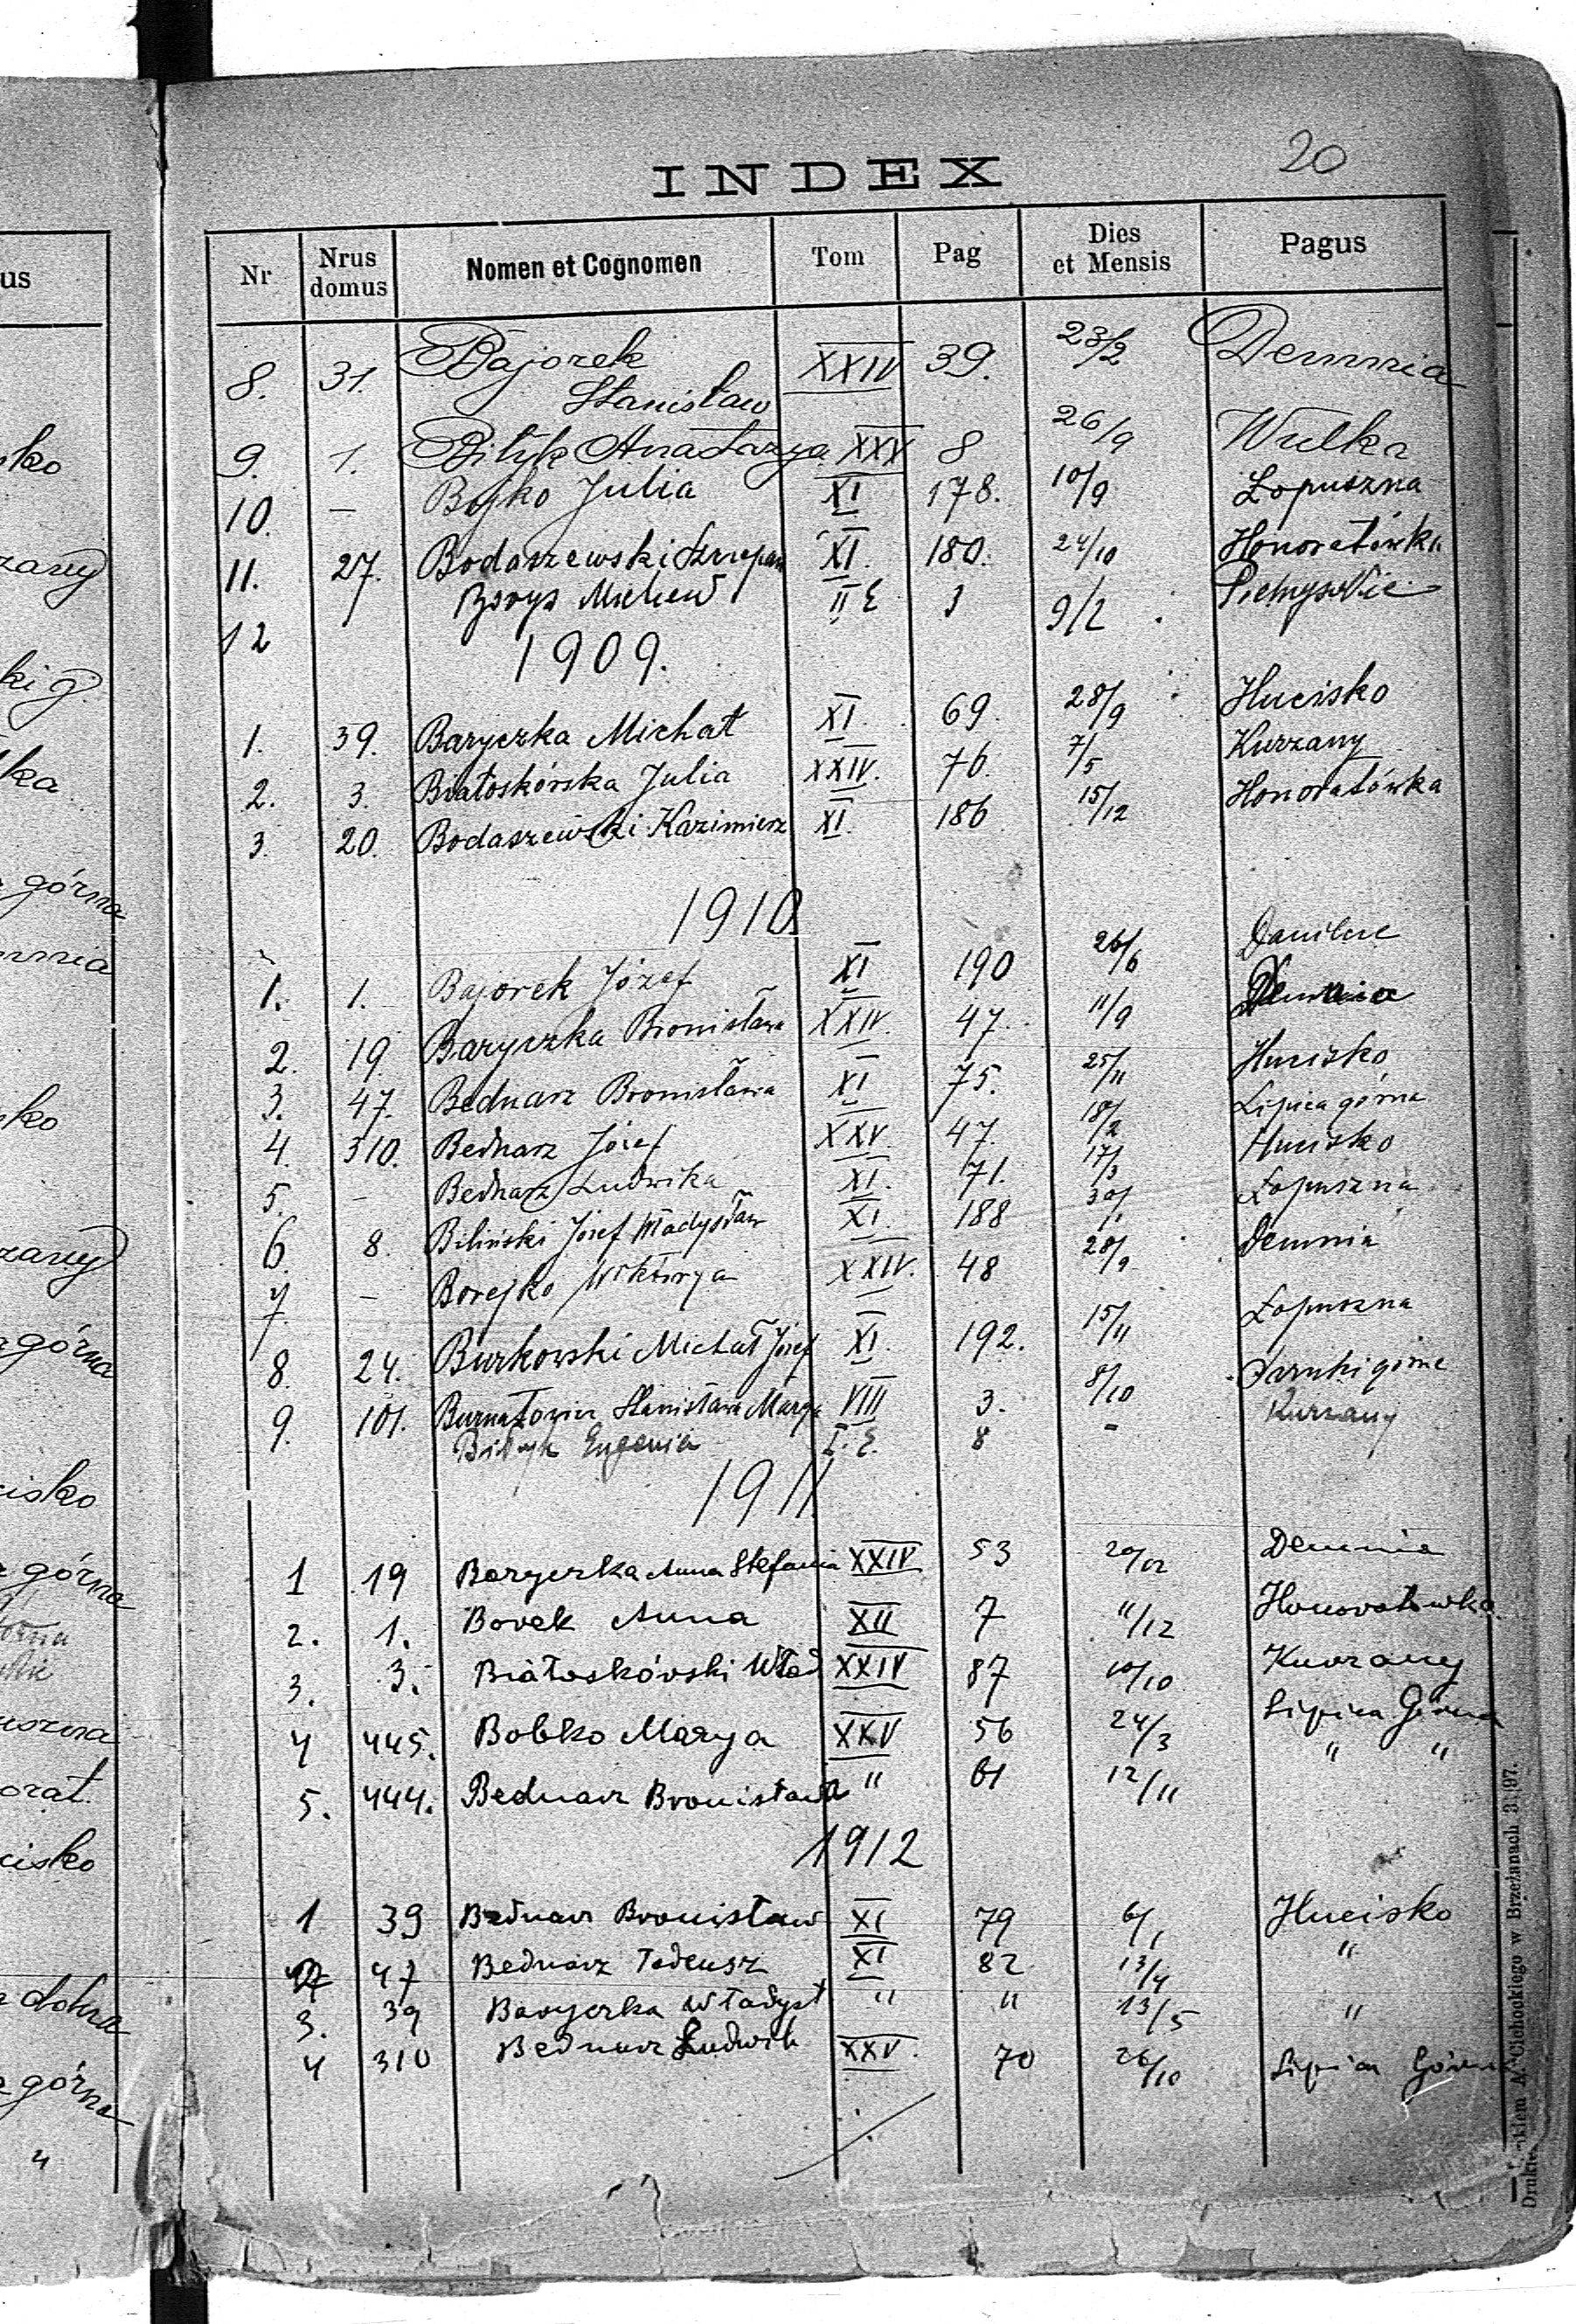 20
INDEX
Nr Nrus domus Nomen et Cognomen Tom Pag Dies et Mensis Pagus
8. 31. Bajorek Stanisław XXIV 39. 23/2 Demnia
9. 1. Bityk Anastazya XXV 8 26/9 Wulka
10. — Bojko Julia XI 178. 10/9 Łopuszna
11. 27. Bodaszewski Szczepan XI. 180. 24/10 Honoratówka
12 II E 3 9/2
1909.
1. 39. Baryczka Michał XI. 69. 28/9 Hucisko
2. 3. Białoskórska Julia XXIV. 76. 7/5 Kurzany
3. 20. Bodaszewski Kazimierz XI. 186 15/12 Honoratówka
1910
1. 1. Bajorek Józef XI 190 26/6
2. 19. Baryczka Bronisława XXIV. 47. 11/9 Demnia
3. 47. Bednarz Bronisława XI 75. 25/11 Hucisko
4. 310. Bednarz Józef XXV. 47. 18/2 Lipica górna
5. — Bednarz Ludwika XI. 71. 17/3 Hucisko
6. 8. Biliński Józef Władysław XI. 188 30/11 Łopuszna
7. — Borejko Wiktorya XXIV. 48 28/9 Demnia
8. 24. Burkowski Michał Józef XI. 192. 15/11 Łopuszna
9. 101. Stanisława Marya VIII 3. 8/10
Bityk Eugenia I. E. 8 - Kurzany
1911
1 19 Baryczka Anna Stefania XXIV 53 20/12 Demnia
2. 1. Borek Anna XII 7 11/12 Honoratówka
3. 3. Białoskórski Wład XXIV 87 10/10 Kurzany
4 445. Bobko Marya XXV 56 24/3 Lipica Górna
5. 444. Bednarz Bronisława " 61 12/11 " "
1912
1 39 Bednarz Bronisław XI 79 6/1 Hucisko
2 47 Bednarz Tadeusz XI 82 13/4 "
3. 39 Baryczka Władysł " " 13/5 "
4 310 Bednarz Ludwik XXV. 70 26/10 Lipica Górna